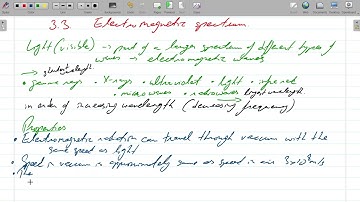 3.3. Electromagnetic spectrum.
Light (visible) → part of a larger spectrum of different types of
waves → electromagnetic waves
→ shortest wavelength
• gamma rays • X-rays • ultraviolet • light • infrared
• microwaves • radiowaves → longest wavelength
in order of increasing wavelength (decreasing frequency)
Properties
• Electromagnetic radiation can travel through vacuum with the
same speed as light.
• Speed in vacuum is approximately same as speed in air 3x10⁸m/s
• The